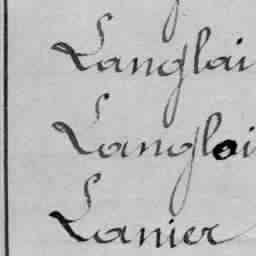 Langlai
Langloi
Lanier